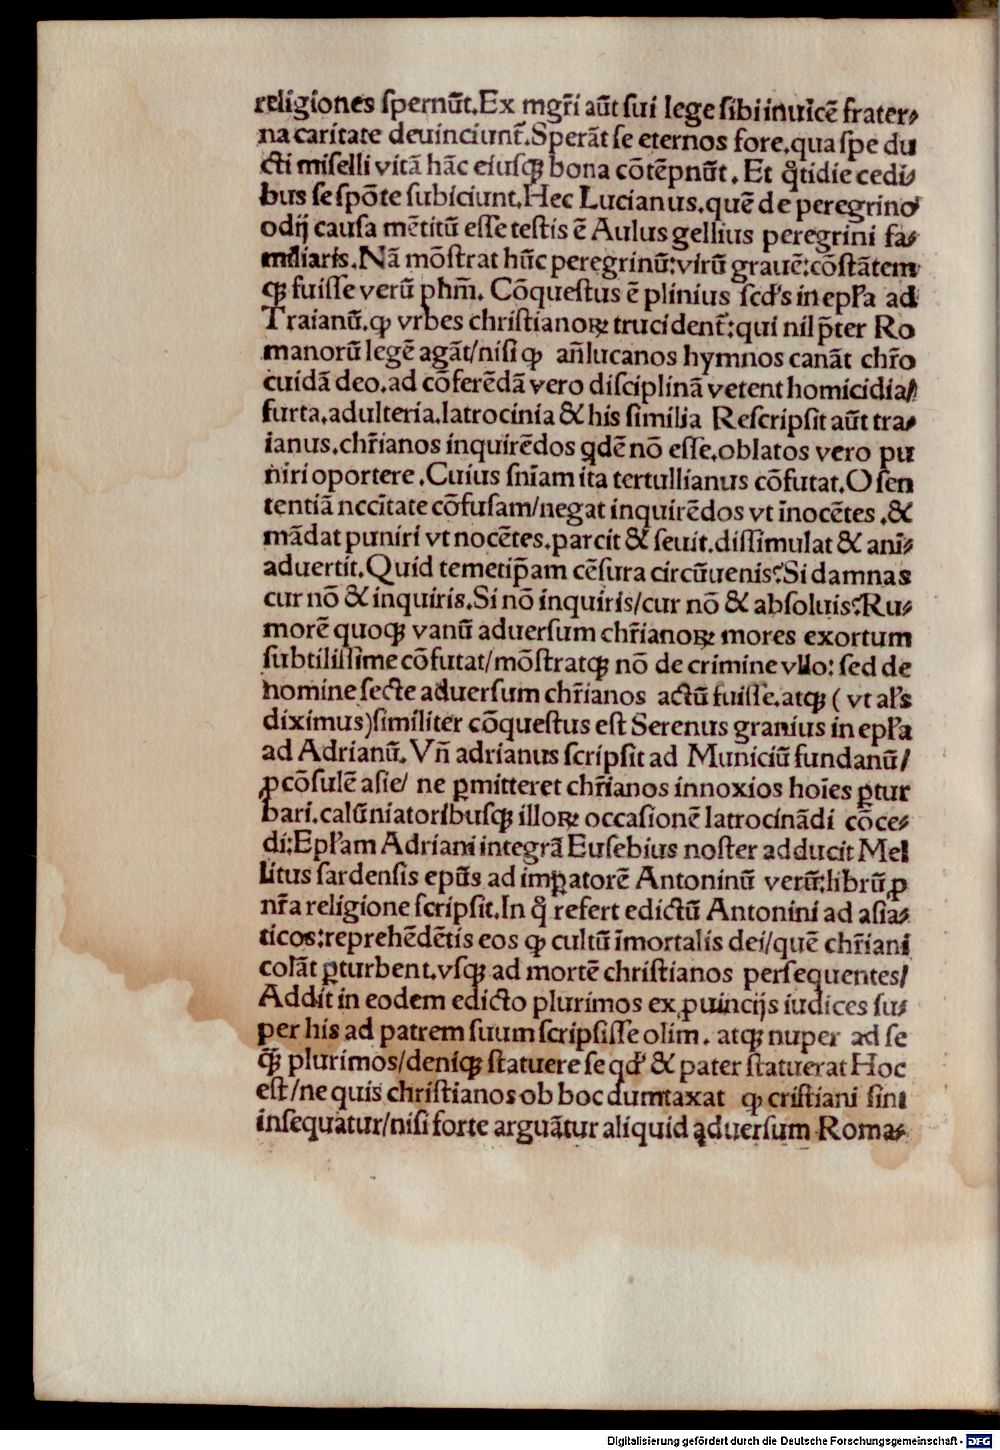 religiones ſpernūt.Ex mgr̄i aūt ſui lege ſibi inuicē frater⸗
na caritate deuinciunt̄.Sperāt ſe eternos fore.qua ſpe du
cti miſelli vitā hāc eiuſqꝫ bona cōtēpnūt. Et qͥtidie cedi⸗
bus ſe ſpōte ſubiciunt.Hec Lucianus.quē de peregrino
odij cauſa mētitū eſſe teſtis ē Aulus gellius peregrini fa⸗
miliaris.Nā mōſtrat hūc peregrinū:virū grauē:cōſtātem
qꝫ fuiſſe verū phm̄. Cōqueſtus ē plinius ſcd's in epl'a ad
Traianū.ꝙ vrbes chriſtianoꝝ trucident̄:qui nil p̄ter Ro
manorū legē agāt/niſi ꝙ an̄lucanos hymnos canāt chr̄o
cuidā deo.ad cōferēdā vero diſciplinā vetent homicidia/
furta.adulteria.latrocinia & his ſimilia Reſcripſit aūt tra⸗
ianus.chr̄ianos inquirēdos qdē nō eſſe.oblatos vero pu
niri oportere.Cuius ſniam ita tertullianus cōfutat.O ſen
tentiā nccītate cōfuſam/negat inquirēdos vt īnocētes.&
mādat puniri vt nocētes.parcit & ſeuit.diſſimulat & ani⸗
aduertit.Quid temetip̄am cēſura circūuenis?Si damnas
cur nō & inquiris.Si nō inquiris/cur nō & abſoluis?Ru⸗
morē quoqꝫ vanū aduerſum chr̄ianoꝝ mores exortum
ſubtiliſſime cōfutat/mōſtratqꝫ nō de crimine vllo: ſed de
nomine ſecte aduerſum chr̄ianos actū fuiſſe.atqꝫ ( vt al's
diximus)ſimiliter cōqueſtus eſt Serenus granius in epl'a
ad Adrianū. Vn̄ adrianus ſcripſit ad Municiū fundanū/
ꝓcōſulē aſie/ ne ꝑmitteret chr̄ianos innoxios hoīes ꝑtur
bari.calūniatoribuſqꝫ illoꝝ occaſionē latrocinādi cōce⸗
di:Epl'am Adriani integrā Euſebius noſter adducit Mel
litus ſardenſis epūs ad imꝑatorē Antoninū verū:librū ꝓ
nr̄a religione ſcripſit.In qͦ refert edictū Antonini ad aſia⸗
ticos:reprehēdētis eos ꝙ cultū īmortalis dei/quē chr̄iani
colāt ꝑturbent.vſqꝫ ad mortē chriſtianos perſequentes/
Addit in eodem edicto plurimos ex ꝓuincijs iudices ſu⸗
per his ad patrem ſuum ſcripſiſſe olim. atqꝫ nuper ad ſe
qͣꝫ plurimos/deniqꝫ ſtatuere ſe qd' & pater ſtatuerat Hoc
eſt/ne quis chriſtianos ob hoc dumtaxat ꝙ criſtiani ſint
inſequatur/niſi forte arguātur aliquid aduerſum Roma⸗
Digitalisierung gefördert durch die Deutsche Forschungsgemeinschaft - DFG